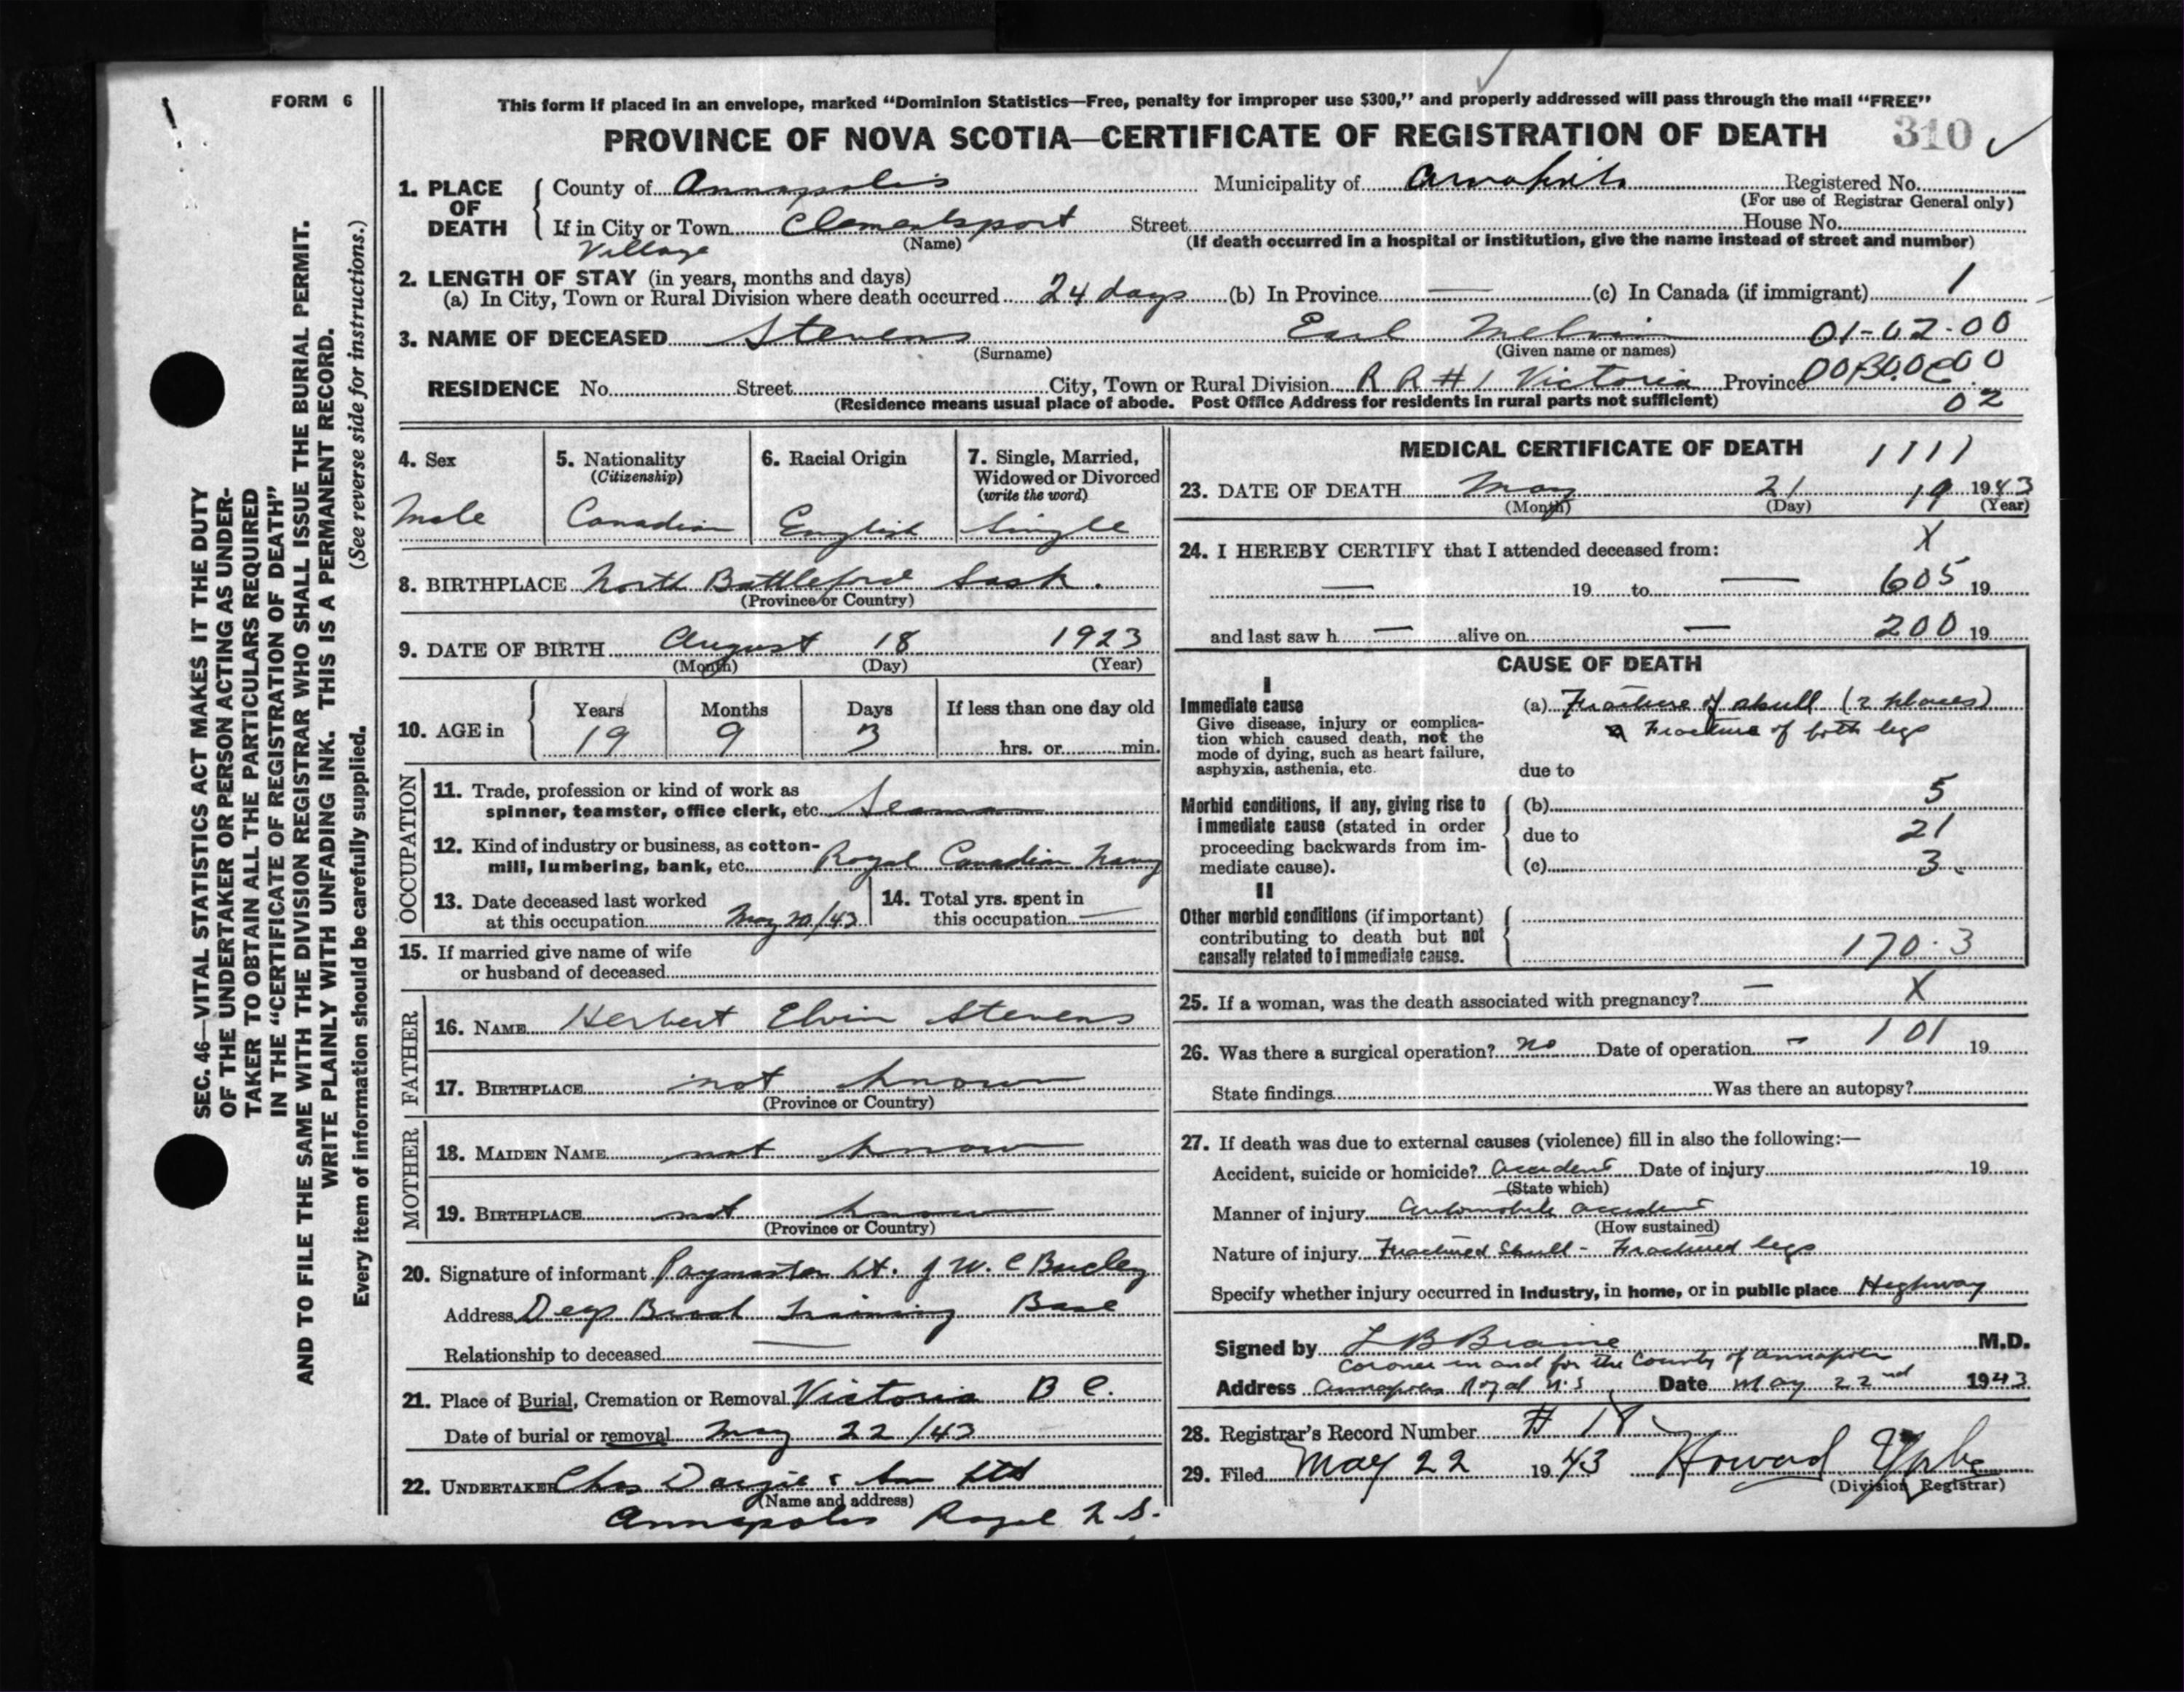 FORM 6
This form if placed in an envelope, marked “Dominion Statistics—Free, penalty for improper use $300,” and properly addressed will pass through the mail “FREE”
PROVINCE OF NOVA SCOTIA—CERTIFICATE OF REGISTRATION OF DEATH 310
SEC. 46—VITAL STATISTICS ACT MAKES IT THE DUTY
OF THE UNDERTAKER OR PERSON ACTING AS UNDER-
TAKER TO OBTAIN ALL THE PARTICULARS REQUIRED
IN THE “CERTIFICATE OF REGISTRATION OF DEATH”
AND TO FILE THE SAME WITH THE DIVISION REGISTRAR WHO SHALL ISSUE THE BURIAL PERMIT.
WRITE PLAINLY WITH UNFADING INK. THIS IS A PERMANENT RECORD.
Every item of information should be carefully supplied. (See reverse side for instructions.)
1. PLACE OF DEATH County of Annapolis Municipality of Annapolis Registered No.
(For use of Registrar General only)
If in City or Town Clementsport Street House No.
Village (Name) (If death occurred in a hospital or institution, give the name instead of street and number)
2. LENGTH OF STAY (in years, months and days)
(a) In City, Town or Rural Division where death occurred 24 days (b) In Province — (c) In Canada (if immigrant) 1
3. NAME OF DECEASED Stevens Earl Melvin 01-02-00
(Surname) (Given name or names)
RESIDENCE No. Street City, Town or Rural Division R R #1 Victoria Province
(Residence means usual place of abode. Post Office Address for residents in rural parts not sufficient) 02
4. Sex
Male
5. Nationality
(Citizenship)
Canadian
6. Racial Origin
English
7. Single, Married,
Widowed or Divorced
(write the word)
Single
8. BIRTHPLACE North Battleford Sask.
(Province or Country)
9. DATE OF BIRTH August 18 1923
(Month) (Day) (Year)
10. AGE in Years Months Days If less than one day old
19 9 3 hrs. or min.
OCCUPATION
11. Trade, profession or kind of work as
spinner, teamster, office clerk, etc. Seaman
12. Kind of industry or business, as cotton-
mill, lumbering, bank, etc. Royal Canadian Navy
13. Date deceased last worked
at this occupation May 20/43
14. Total yrs. spent in
this occupation —
15. If married give name of wife
or husband of deceased
FATHER
16. NAME Herbert Elvin Stevens
17. BIRTHPLACE not known
(Province or Country)
MOTHER
18. MAIDEN NAME not known
19. BIRTHPLACE not known
(Province or Country)
20. Signature of informant Paymaster Lt. J W. C
Address Deep Brook Training Base
Relationship to deceased —
21. Place of Burial, Cremation or Removal Victoria B C.
Date of burial or removal May 22/43
22. UNDERTAKER Chas Dargie & Son Ltd
(Name and address)
Annapolis Royal N.S.
MEDICAL CERTIFICATE OF DEATH 1111
23. DATE OF DEATH May 21 19 1943
(Month) (Day) (Year)
24. I HEREBY CERTIFY that I attended deceased from: X
— 19 to — 605 19
and last saw h — alive on — 200 19
CAUSE OF DEATH
I
Immediate cause
Give disease, injury or complica-
tion which caused death, not the
mode of dying, such as heart failure,
asphyxia, asthenia, etc.
(a) Fracture of skull (2 places)
Fracture of both legs
due to
Morbid conditions, if any, giving rise to
immediate cause (stated in order
proceeding backwards from im-
mediate cause).
(b) 5
due to 21
(c) 3
II
Other morbid conditions (if important)
contributing to death but not
causally related to immediate cause.
170.3
25. If a woman, was the death associated with pregnancy? — X
26. Was there a surgical operation? no Date of operation — 101 19
State findings Was there an autopsy?
27. If death was due to external causes (violence) fill in also the following:—
Accident, suicide or homicide? Accident Date of injury 19
(State which)
Manner of injury Automobile accident
(How sustained)
Nature of injury Fractured Skull - Fractured legs
Specify whether injury occurred in industry, in home, or in public place Highway
Signed by L B Braine M.D.
Coroner in and for the County of Annapolis
Address Annapolis Royal N.S. Date May 22nd 1943
28. Registrar's Record Number # 18
29. Filed May 22 1943 Howard
(Division Registrar)